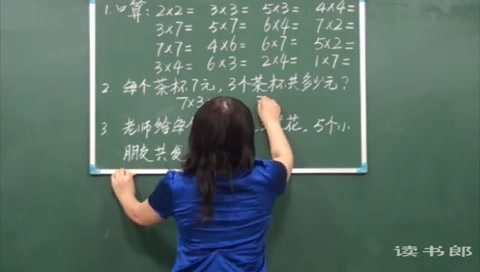 1.口算: 2×2= 3×3= 5×3= 4×4=
3×7= 5×5= 6×4= 7×2=
7×7= 4×6= 6×7= 5×2=
3×4= 6×3= 2×4= 1×7=
2. 每个茶杯7元,3个茶杯共多少元?
7×3
3 老师给每 花,5个小
朋友共发
读书郎